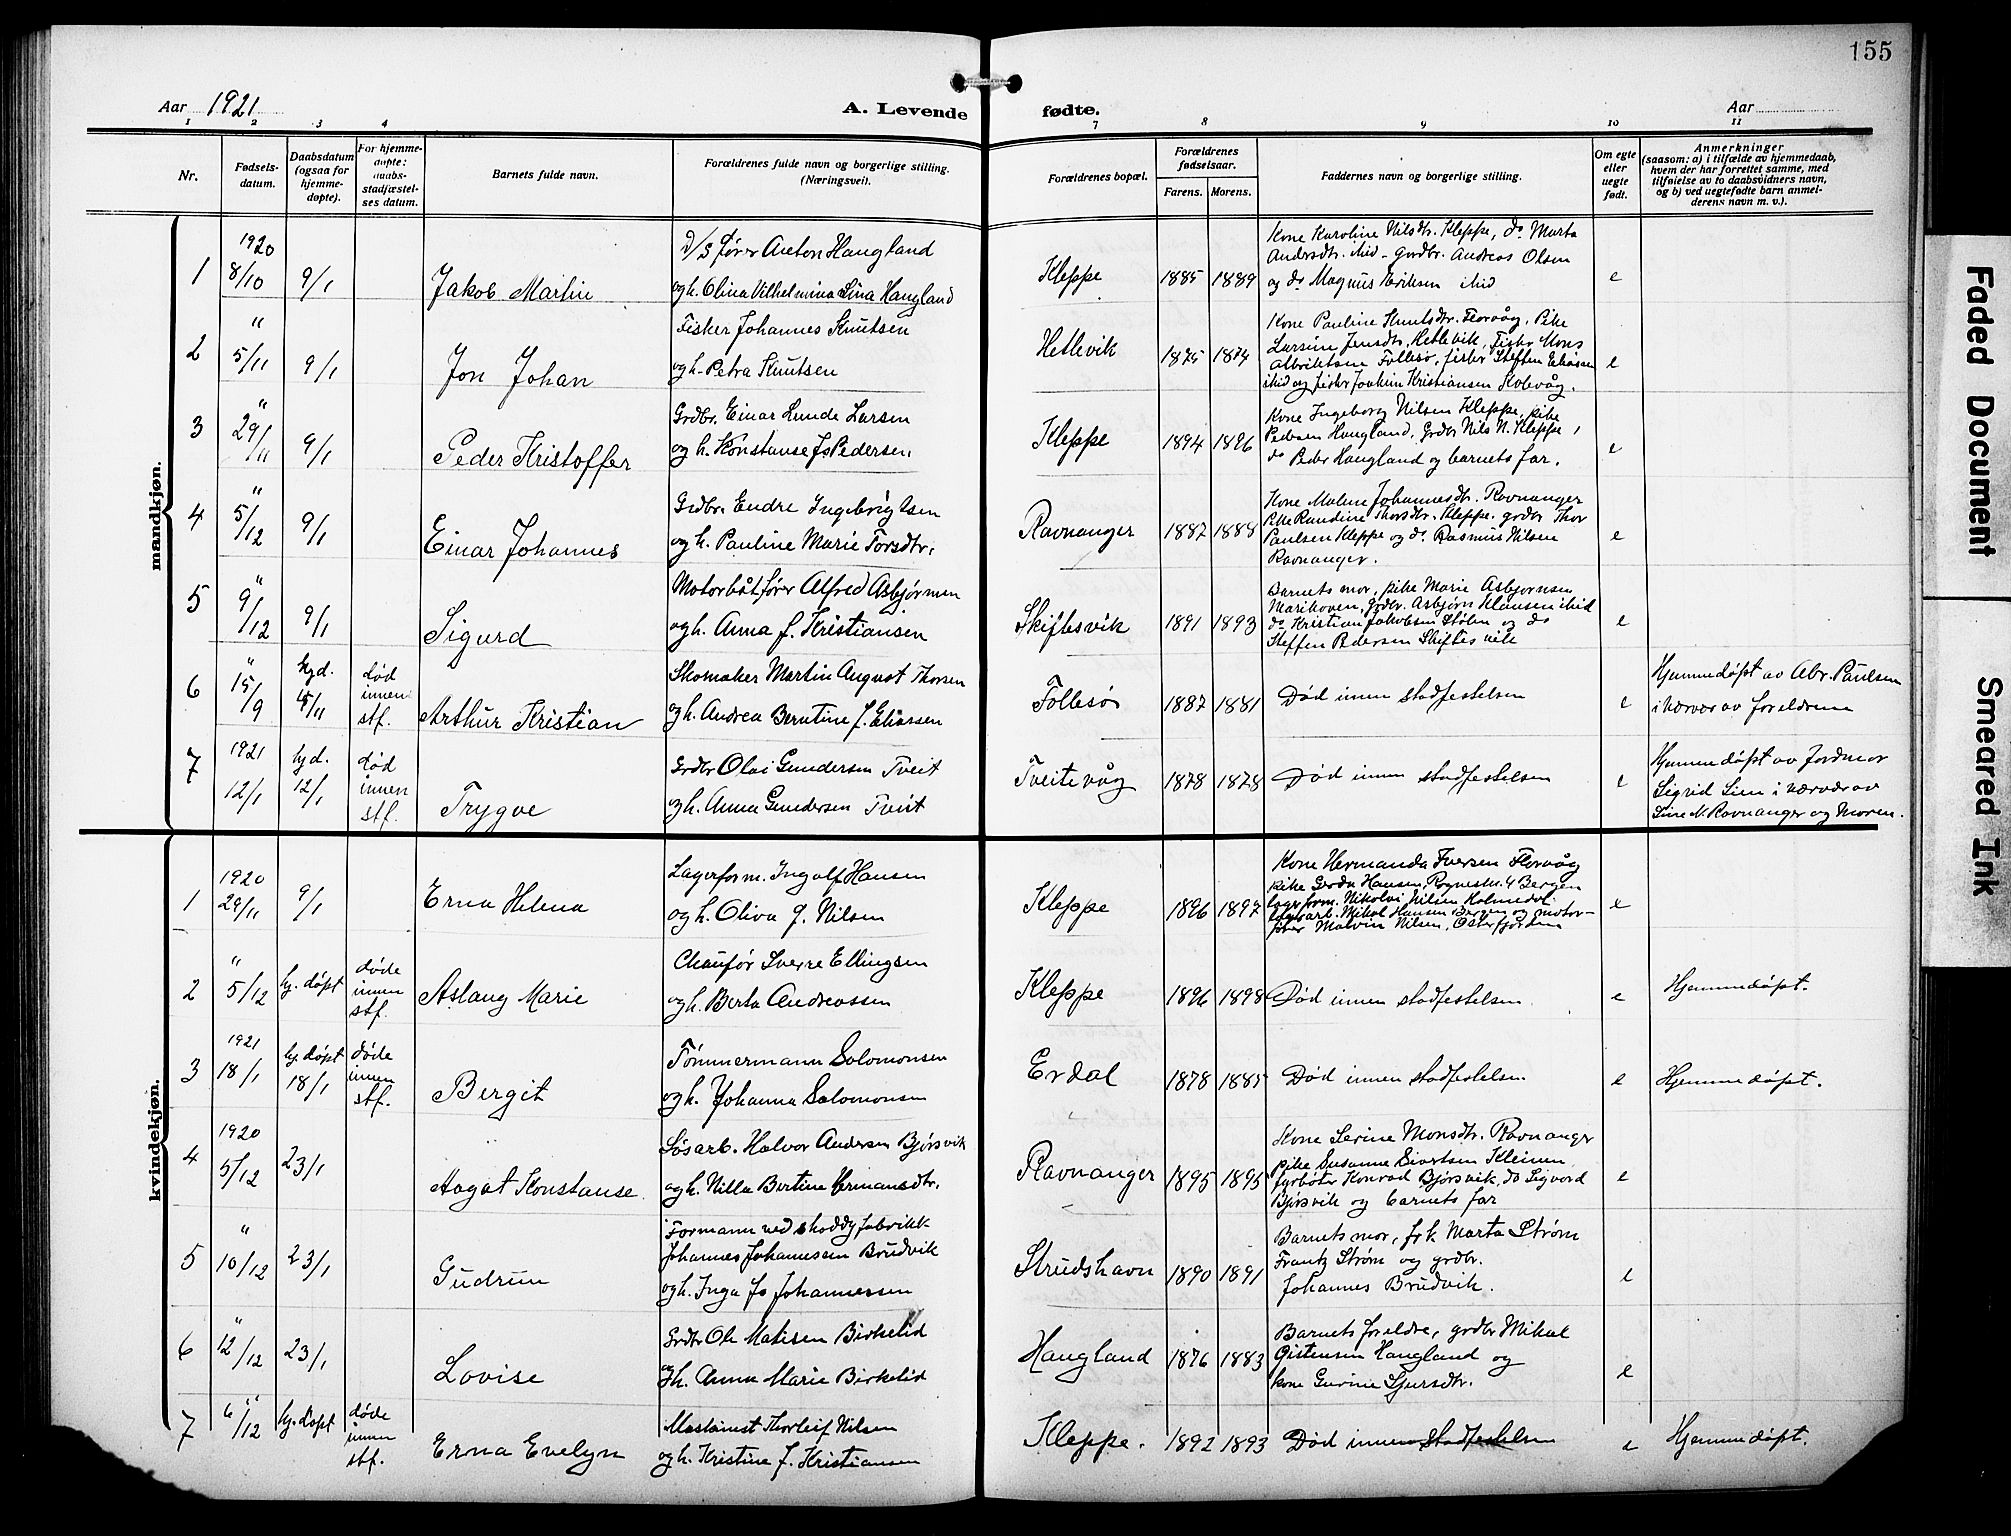 155
Aar 1921
A. Levende fødte.
Aar
1 2 3 4 7 8 9 10 11
Nr.
Fødsels-
datum.
Daabsdatum
(ogsaa for
hjemme-
døpte).
For hjemme-
døpte:
daabs-
stadfæstel-
ses datum.
Barnets fulde navn.
Forældrenes fulde navn og borgerlige stilling.
(Næringsvei).
Forældrenes bopæl.
Forældrenes
fødselsaar.
Farens. Morens.
Faddernes navn og borgerlige stilling.
Om egte
eller
uegte
født.
Anmerkninger
(saasom: a) i tilfælde av hjemmedaab,
hvem der har forrettet samme, med
tilføielse av to daabsvidners navn,
og b) ved uegtefødte barn anmel-
derens navn m. v.).
mandkjøn.
1 1920 8/10 9/1 Jakob Martin
D/S fører Anton Haugland
og h. Olina Vilhelmina Lina Haugland
Kleppe 1885 1889
Kone Karoline Nilsdtr. Kleppe, do Marta
Andersdtr. ibid - grdbr. Andreas Olsen
og do Magnus Eriksen ibid
e
2 " 5/11 9/1 Jon Johan
Fisker Johannes Knutsen
og h. Petra Knutsen
Hetlevik 1875 1874
Kone Pauline Knutsdtr. Florvåg, Pike
Larsine Jensdtr. Hetlevik, Fisker Mons
Albriktsen Follesø, fisker Steffen Eliassen
ibid og fisker Joakim Kristiansen Kolevåg.
e
3 " 29/11 9/1 Peder Kristoffer
Grdbr. Einar Lunde Larsen
og h. Konstanse Js Pedersen.
Kleppe 1894 1896
Kone Ingeborg Nilsen Kleppe, pike
Pedersen Haugland, Grdbr Nils N. Kleppe,
do Peder Haugland og barnets far.
e
4 " 5/12 9/1 Einar Johannes
Grdbr. Endre Ingebrigtsen
og h. Pauline Marie Torsdtr.
Ravnanger 1887 1888
Kone Malene Johannesdtr. Ravnanger
Pike Randine Thorsdtr. Kleppe. grdbr Thor
Paulsen Kleppe og do. Rasmus Nilsen
Ravnanger.
e
5 " 9/12 9/1 Sigurd
Motorbåtfører Alfred Asbjørnsen
og h. Anna f. Kristiansen
Skiftesvik 1891 1893
Barnets mor, pike Marie Asbjørnsen
Marikoven, grdbr. Asbjørn Klausen ibid
do Kristian Jakobsen Stølen og do
Steffen Pedersen Skiftesvik
e
6 " 15/9 hjd. 15/11 død
innen
stf. Arthur Kristian
Skomaker Martin August Thorsen
og h. Andrea Berntine f. Eliassen
Follesø 1887 1881
Død innen stadfestelsen
e
Hjemmedøpt av Abr. Paulsen
i nærvær av foreldrene
7 1921 12/1 hjd. 12/1 død
innen
stf. Trygve
Grdbr Olai Gundersen Tveit
og h. Anna Gundersen Tveit
Tveitevåg 1878 1878
Død innen stadfestelsen
e
Hjemmedøpt av Jordmor
Sigrid Lien i nærvær av
Line N. Ravnanger og moren.
kvindekjøn.
1 1920 29/11 9/1 Erna Helena
Lagerform. Ingolf Hansen
og h. Oliva g. Nilsen
Kleppe 1896 1897
Kone Hermanda Iversen Florvåg
pike Gerda Hansen, 4 Bergen
lagerform. Nikolai Nilsen
lagerarb. Mikal Hansen Bergen og motor-
Malvin Nilsen, Osterfjorden
e
2 " 5/12 hj. døpt døde
innen
stf. Aslaug Marie
Chaufør Sverre Ellingsen
og h. Berta Andreassen
Kleppe 1896 1898
Død innen stadfestelsen.
e
Hjemmedøpt.
3 1921 18/1 hj. døpt 18/1 døde
innen
stf. Bergit
Tømmermann Salomonsen
og h. Johanna Salomonsen
Erdal 1878 1885
Død innen stadfestelsen
e
Hjemmedøpt.
4 1920 5/12 23/1 Aagot Konstanse
Løsarb. Halvor Andersen Bjørsvik
og h. Nilla Bertine Hermansdtr.
Ravnanger 1895 1895
Kone Serine Monsdtr. Ravnanger
pike Susanne Sivertsen Kleiven,
fyrbøter Konrad Bjørsvik, do Sigvard
Bjørsvik og barnets far
e
5 " 10/12 23/1 Gudrun
Formann ved shoddyfabrikk
Johannes Johannessen Brudvik
og h. Inga Js Johannessen
Strudshavn 1890 1891
Barnets mor, frk Marta Strøm
Frantz Strøm og grdbr.
Johannes Brudvik.
e
6 " 12/12 23/1 Lovise
Grdbr Ole Matisen Birkelid
og h. Anna Marie Birkelid
Haugland 1876 1883
Barnets foreldre, grdbr Mikal
Gistensen Haugland og
kone Gurine Sjursdtr.
e
7 " 6/12 hj. døpt døde
innen
stf. Erna Evelyn
Maskinist Thorleif Nilsen
og h. Kristine f. Kristiansen
Kleppe. 1892 1893
Død innen stadfestelsen
e
Hjemmedøpt.
Faded Document
Smeared Ink